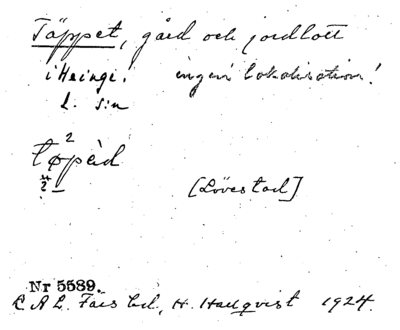 Täppet, gård och jordlott
i Heinge. ingen lokalisation!
l. s:n
2
tøpèd
[Lövestad]
Nr 5589.
L A L. Färs hd, H. Hallqvist 1924.